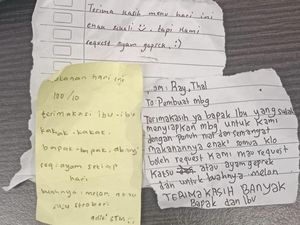 Terima kasih menu hari ini
enak sekali, tapi kami
request ayam geprek. :)
makanan hari ini
100/10
terimakasi ibu-ibu
kakak-kakak.
bapak-bapak, abang
req: ayam setiap
hari
buahnya: melon atau
strobori
From: Ray, Thal
To Pembuat mbg
Terimakasih ya bapak ibu yang sudah
menyiapkan mbg untuk kami
dengan penuh niat dan semangat
makanannya enak² semua klo
boleh request kami mau request
Katsu atau ayam geprek
dan untuk buahnya melon
TERIMAKASIH BANYAK
Bapak dan Ibu